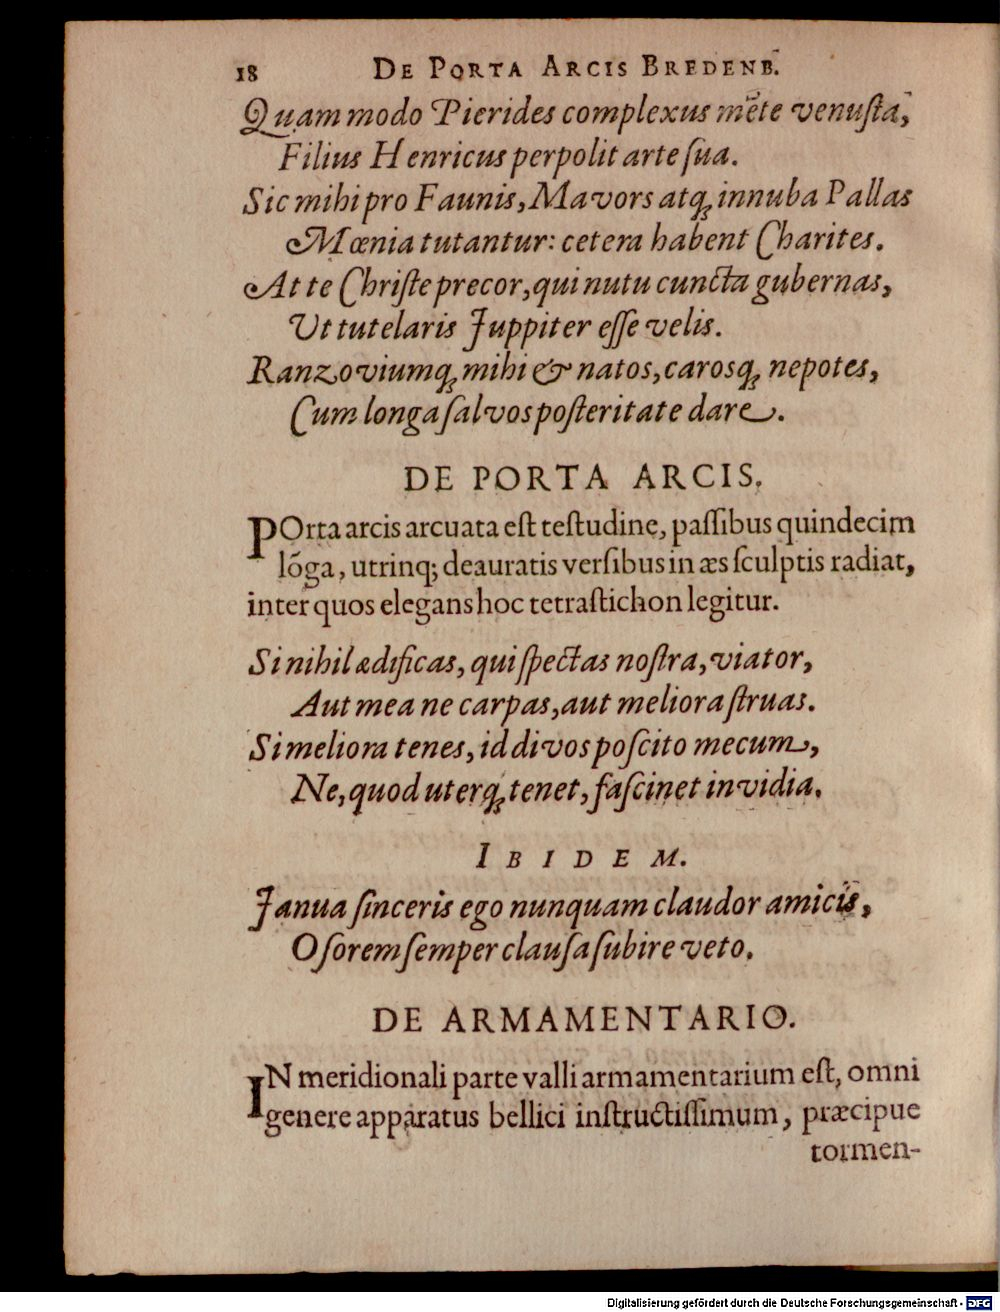 18 DE PORTA ARCIS BREDENB.
Quam modo Pierides complexus mēte venustā,
Filius Henricus perpolit arte sua.
Sic mihi pro Faunis, Mavors atq; innuba Pallas
Mœnia tutantur: cetera habent Charites.
At te Christe precor, qui nutu cuncta gubernas,
Ut tutelaris Juppiter esse velis.
Ranzoviumq; mihi & natos, carosq; nepotes,
Cum longa salvos posteritate dare.
DE PORTA ARCIS.
POrta arcis arcuata est testudine, passibus quindecim
lōga, utrinq; deauratis versibus in æs sculptis radiat,
inter quos elegans hoc tetrastichon legitur.
Si nihil ædificas, qui spectas nostra, viator,
Aut mea ne carpas, aut meliora struas.
Si meliora tenes, id divos poscito mecum,
Ne, quod uterq; tenet, fascinet invidia.
IBIDEM.
Janua sinceris ego nunquam claudor amicis,
Osorem semper clausa subire veto.
DE ARMAMENTARIO.
IN meridionali parte valli armamentarium est, omni
genere apparatus bellici instructissimum, præcipue
tormen-
Digitalisierung gefördert durch die Deutsche Forschungsgemeinschaft - DFG